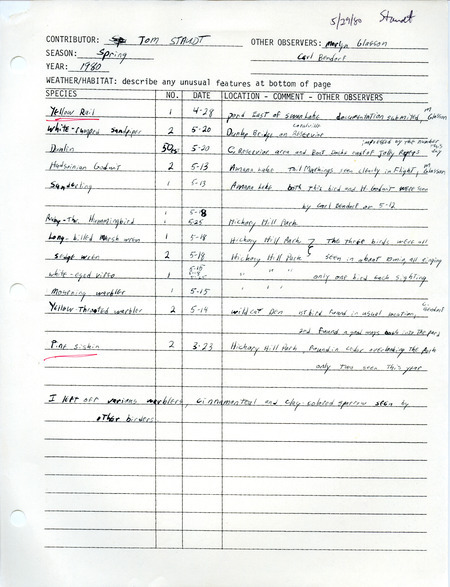 5/29/80 Staudt
CONTRIBUTOR: Tom STAUDT OTHER OBSERVERS: Marlyn Glasson
SEASON: Spring Carl Bendorf
YEAR: 1980
WEATHER/HABITAT: describe any unusual features at bottom of page
SPECIES NO. DATE LOCATION - COMMENT - OTHER OBSERVERS
Yellow Rail 1 4-28 pond East of documentation submitted, M Glasson
White-rumped Sandpiper 2 5-20 Dunby Bridge on Reservoir
Dunlin 50 5-20 C. Reservoir area and Boat Docks east of Jolly Rogers impressed by the number this day
Hudsonian Godwit 2 5-13 Amana Lake Tail Markings seen clearly in Flight, M Glasson
Sanderling 1 5-13 Amana Lake both this bird and H. Godwit were seen
by Carl Bendorf on 5-12
Ruby-Thr Hummingbird 1 5-25 Hickory Hill Park
Long-billed Marsh wren 1 5-18 Hickory Hill Park } The three birds were all
Sedge wren 2 5-18 Hickory Hill Park seen in about 10 min, all singing
white-eyed vireo 1 5-15 " " " only one bird each sighting
Mourning warbler 1 5-15 " " "
Yellow Throated warbler 2 5-14 wildcat Den 1st bird found in usual location, C. Bendorf
2nd Found a good ways back into the park
Pine siskin 2 3-23 Hickory Hill Park, Found in cedar overlooking the Park
only Two seen This year
I left off various warblers, cinnamon teal and clay-colored sparrow seen by
other birders